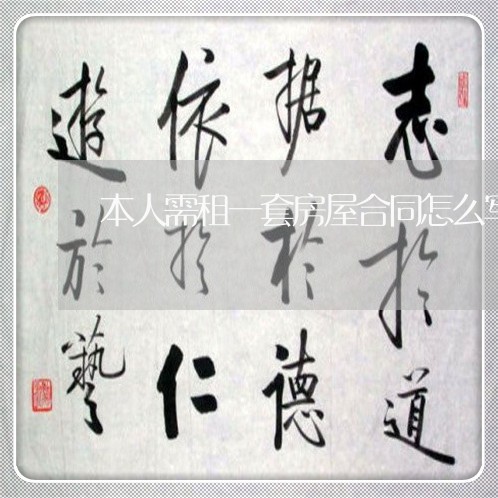 志扵道
据於德
依扵仁
遊於藝
本人需租一套房屋合同怎么写